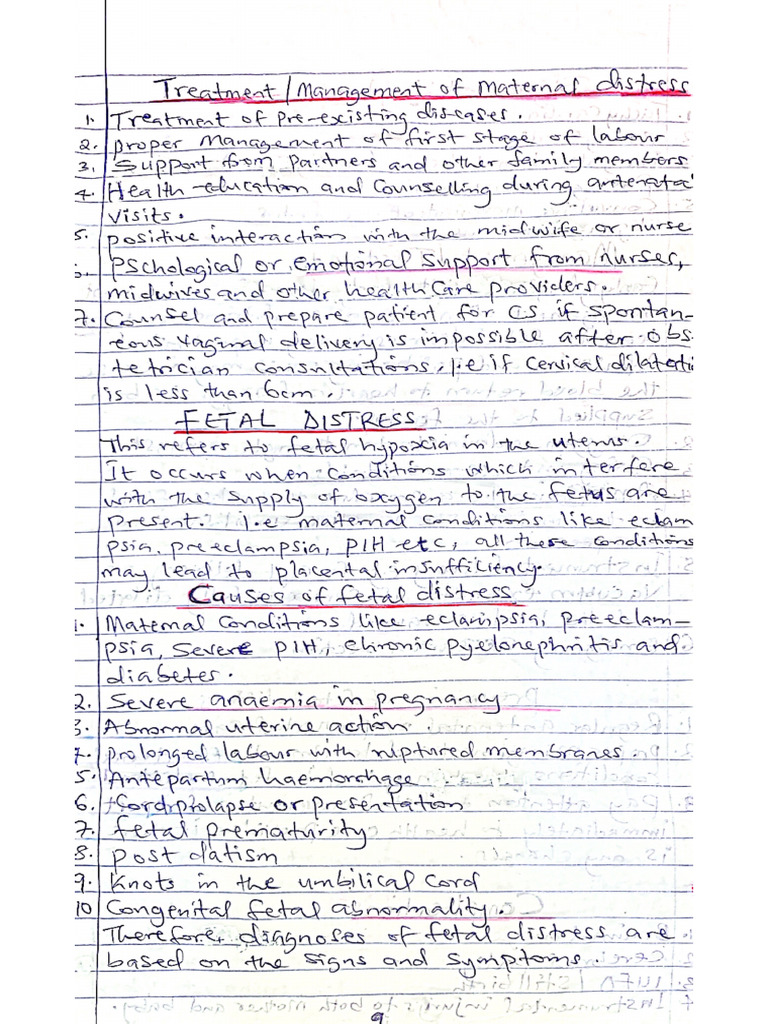 Treatment/Management of Maternal distress
1. Treatment of pre-existing diseases.
2. proper Management of first stage of labour
3. Support from partners and other family members
4. Health education and Counselling during antenatal
visits.
5. positive interaction with the midwife or nurse
6. Pschological or emotional support from nurses,
midwives and other health care providers.
7. Counsel and prepare patient for CS if spontan-
eous vaginal delivery is impossible after obs
tetrician consultations, i.e if cervical dilatati
is less than 6cm.
FETAL DISTRESS
This refers to fetal hypoxia in the uterus.
It occurs when conditions which interfere
with the supply of oxygen to the fetus are
present. I.e maternal conditions like eclam
psia, preeclampsia, PIH etc, all these conditions
may lead to placental insufficiency.
Causes of fetal distress
1. Maternal conditions like eclampsia, preeclam-
psia, Severe PIH, chronic pyelonephritis and
diabetes.
2. Severe anaemia in pregnancy
3. Abnormal uterine action.
4. prolonged labour with ruptured membranes.
5. Antepartum haemorrhage.
6. Cord prolapse or presentation
7. fetal prematurity
8. post datism
9. Knots in the umbilical cord
10 Congenital fetal abnormality.
Therefore, diagnoses of fetal distress are
based on the signs and symptoms.
9